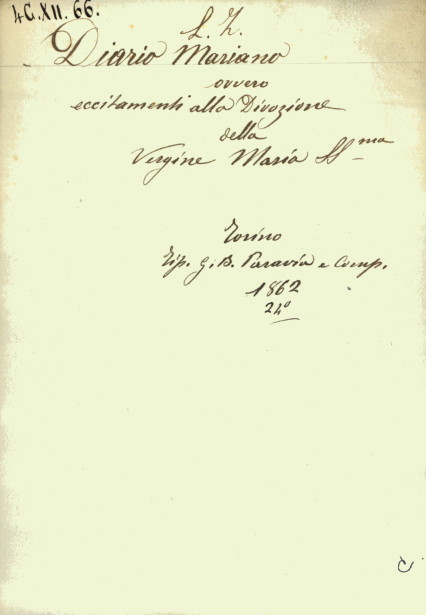 4G.XII.66.
L. Z.
Diario Mariano
ovvero
eccitamenti alla Divozione
della
Vergine Maria SS ma
Torino
Tip. G. B. Paravia e Comp.
1862
24°
C